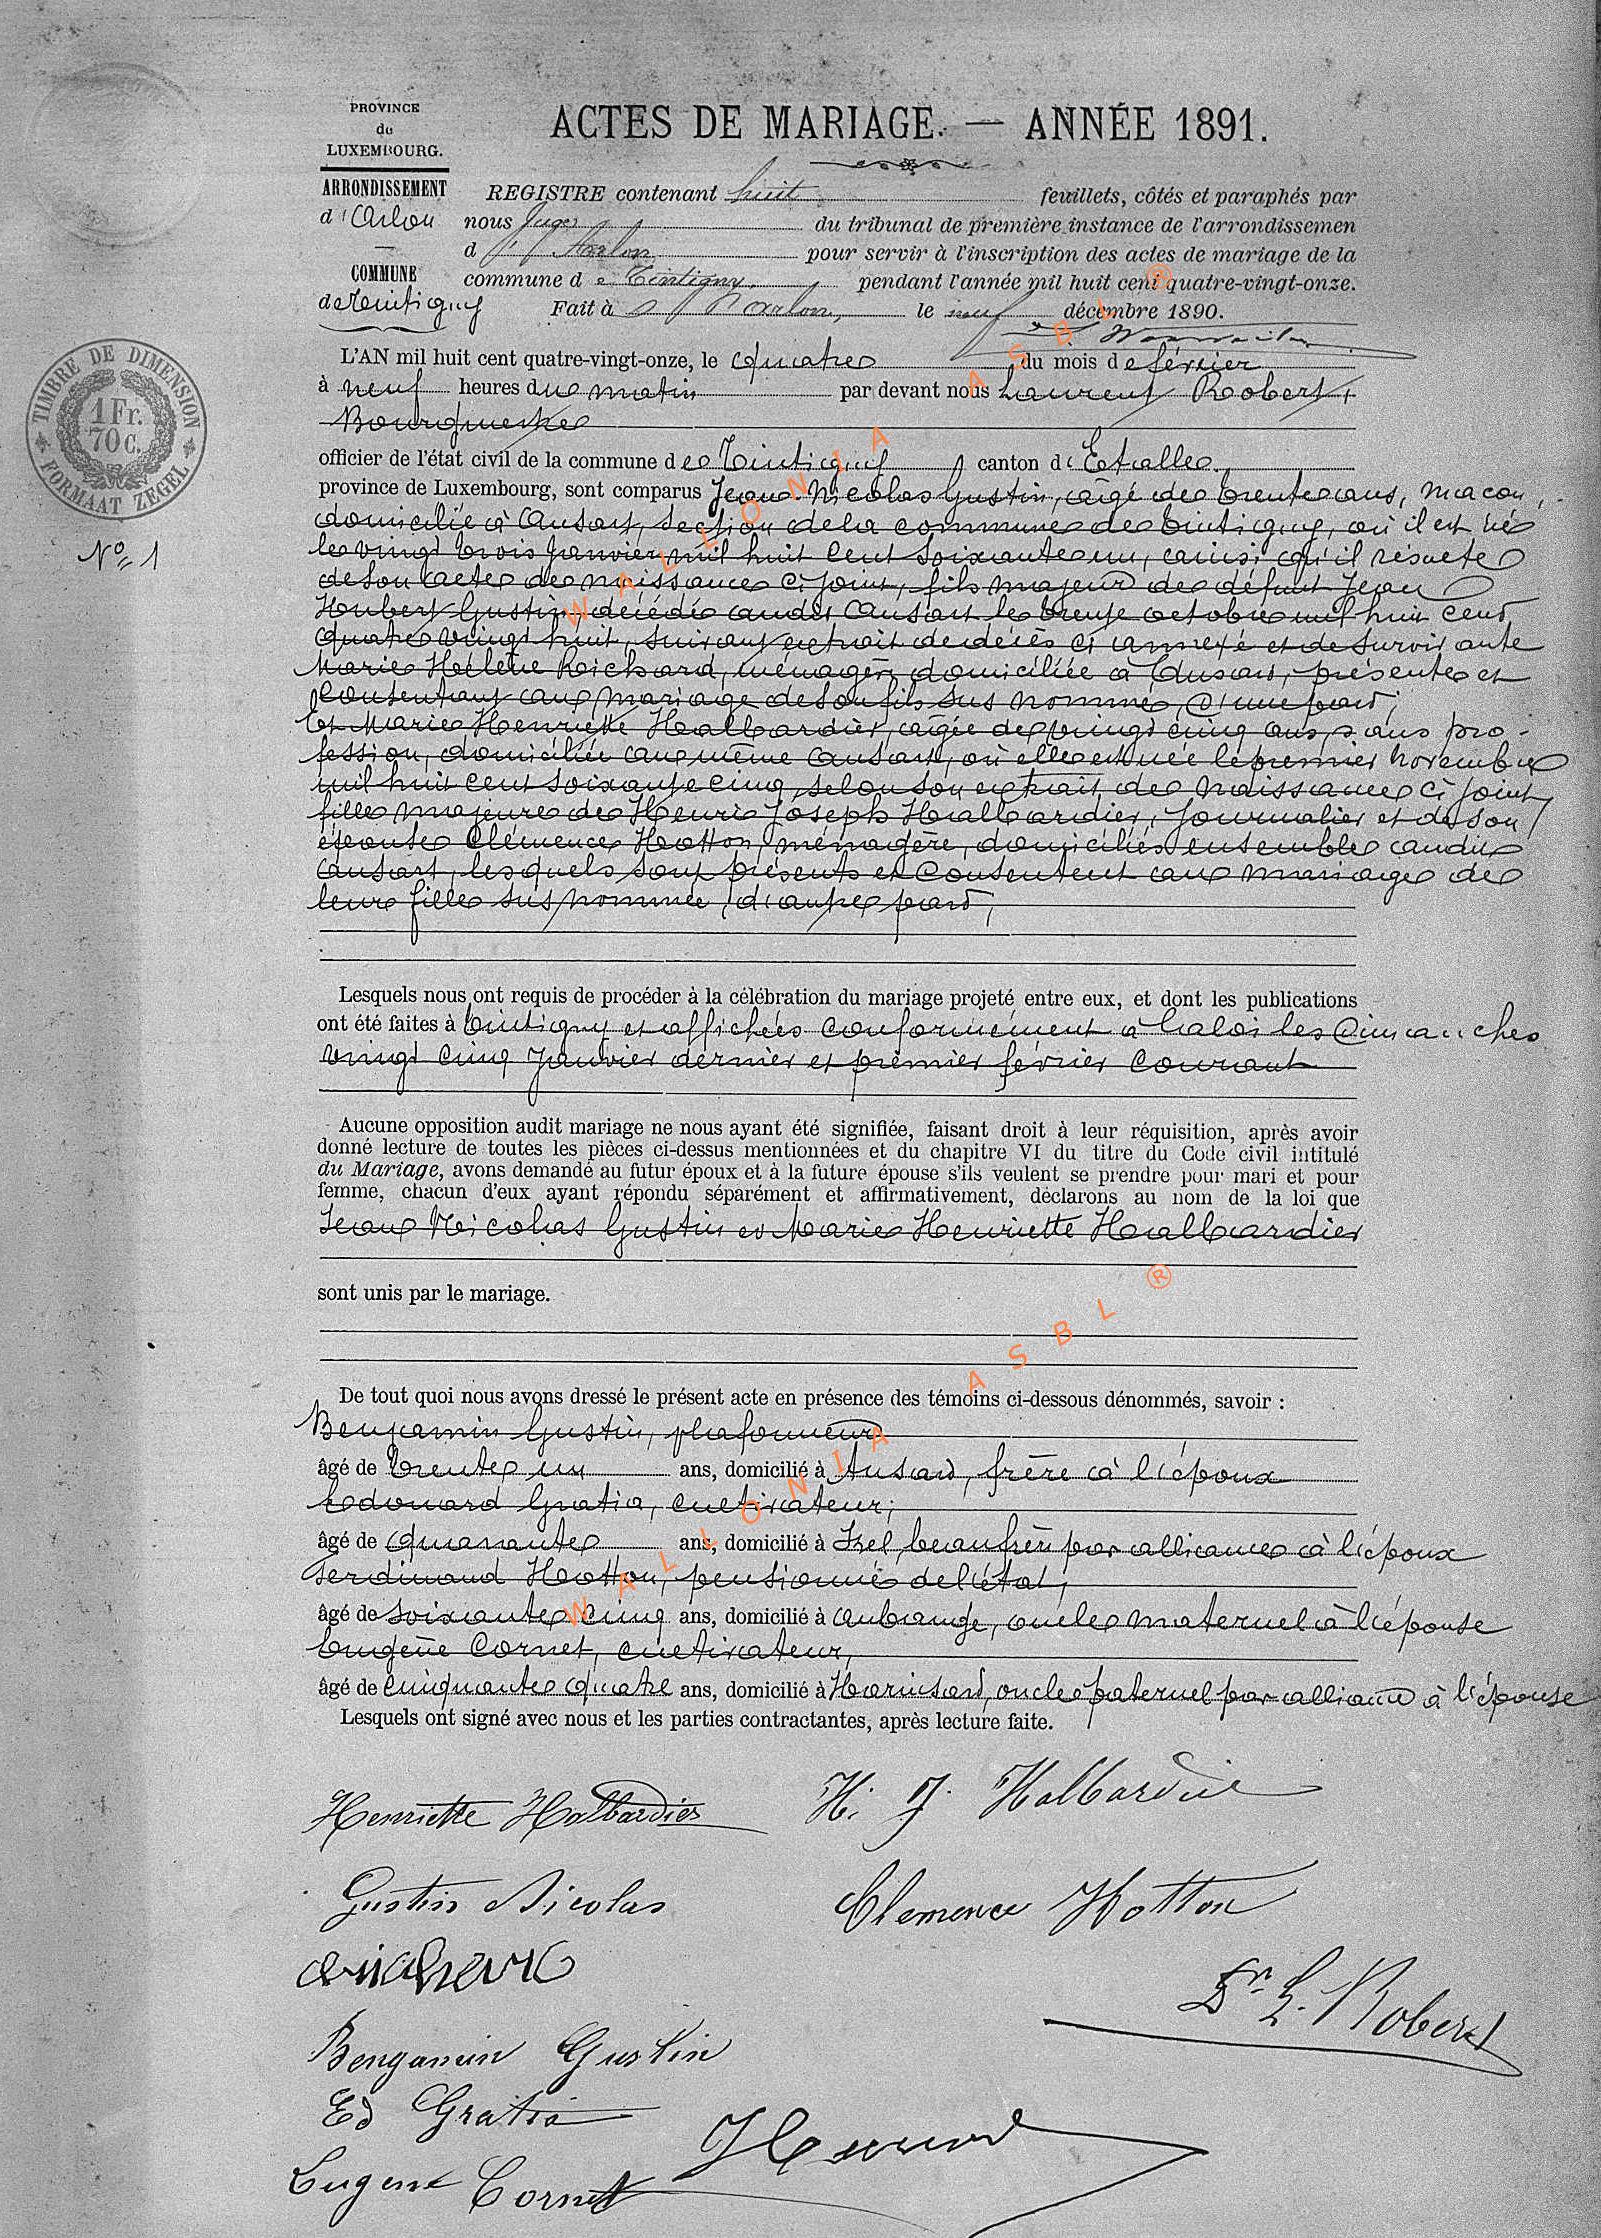 PROVINCE
de
LUXEMBOURG.
ARRONDISSEMENT
d'Arlon
COMMUNE
de Tintigny
ACTES DE MARIAGE. — ANNÉE 1891.
REGISTRE contenant huit feuillets, côtés et paraphés par
nous Juge du tribunal de première instance de l'arrondissemen
d'Arlon pour servir à l'inscription des actes de mariage de la
commune de Tintigny. pendant l'année mil huit cent quatre-vingt-onze.
Fait à Arlon, le neuf décembre 1890.
TIMBRE DE DIMENSION
1 Fr.
70 C.
FORMAAT ZEGEL
No 1
L'AN mil huit cent quatre-vingt-onze, le quatre du mois de février
à neuf heures du matin par devant nous Laurent Robert,
Bourgmestre
officier de l'état civil de la commune de Tintigny canton d'Etalle
province de Luxembourg, sont comparus Jean Nicolas Gustin, âgé de trente ans, maçon,
domicilié à Ansart, section de la commune de Tintigny, où il est né
le vingt trois janvier mil huit cent soixante un, ainsi qu'il résulte
de son acte de naissance ci joint, fils majeur de défunt Jean
Hubert Gustin, décédé au dit Ansart le treize octobre mil huit cent
quatre vingt huit, suivant extrait de décès ci annexé et de survivante
Marie Hélène Richard, ménagère, domiciliée à Ansart, présente et
consentant au mariage de son fils sus nommé, d'une part;
Et Marie Henriette Halbardier, âgée de vingt cinq ans, sans pro-
fession, domiciliée au même Ansart, où elle est née le premier novembre
mil huit cent soixante cinq, selon son extrait de naissance ci joint,
fille majeure de Henri Joseph Halbardier, journalier et de son
épouse Clémence Hotton, ménagère, domiciliés ensemble au dit
Ansart, lesquels sont présents et consentent au mariage de
leur fille sus nommée, d'autre part;
Lesquels nous ont requis de procéder à la célébration du mariage projeté entre eux, et dont les publications
ont été faites à Tintigny et affichées conformément à la loi les dimanches
vingt cinq janvier dernier et premier février courant
Aucune opposition audit mariage ne nous ayant été signifiée, faisant droit à leur réquisition, après avoir
donné lecture de toutes les pièces ci-dessus mentionnées et du chapitre VI du titre du Code civil intitulé
du Mariage, avons demandé au futur époux et à la future épouse s'ils veulent se prendre pour mari et pour
femme, chacun d'eux ayant répondu séparément et affirmativement, déclarons au nom de la loi que
Jean Nicolas Gustin et Marie Henriette Halbardier
sont unis par le mariage.
De tout quoi nous avons dressé le présent acte en présence des témoins ci-dessous dénommés, savoir :
Benjamin Gustin, plafonneur
âgé de trente un ans, domicilié à Ansart, frère à l'époux
Edouard Gratia, cultivateur;
âgé de quarante ans, domicilié à Izel, beau frère par alliance à l'époux
Ferdinand Hotton, pensionné de l'état,
âgé de soixante cinq ans, domicilié à Aubange, oncle maternel à l'épouse
Eugène Cornet, cultivateur,
âgé de cinquante quatre ans, domicilié à Harinsart, oncle paternel par alliance à l'épouse
Lesquels ont signé avec nous et les parties contractantes, après lecture faite.
Henriette Halbardier
H. J. Halbardier
Gustin Nicolas
Clemence Hotton
Dr. L. Robert
Bengamin Gustin
Ed Gratia
Eugene Cornet
WALLONIA ASBL ®
WALLONIA ASBL ®